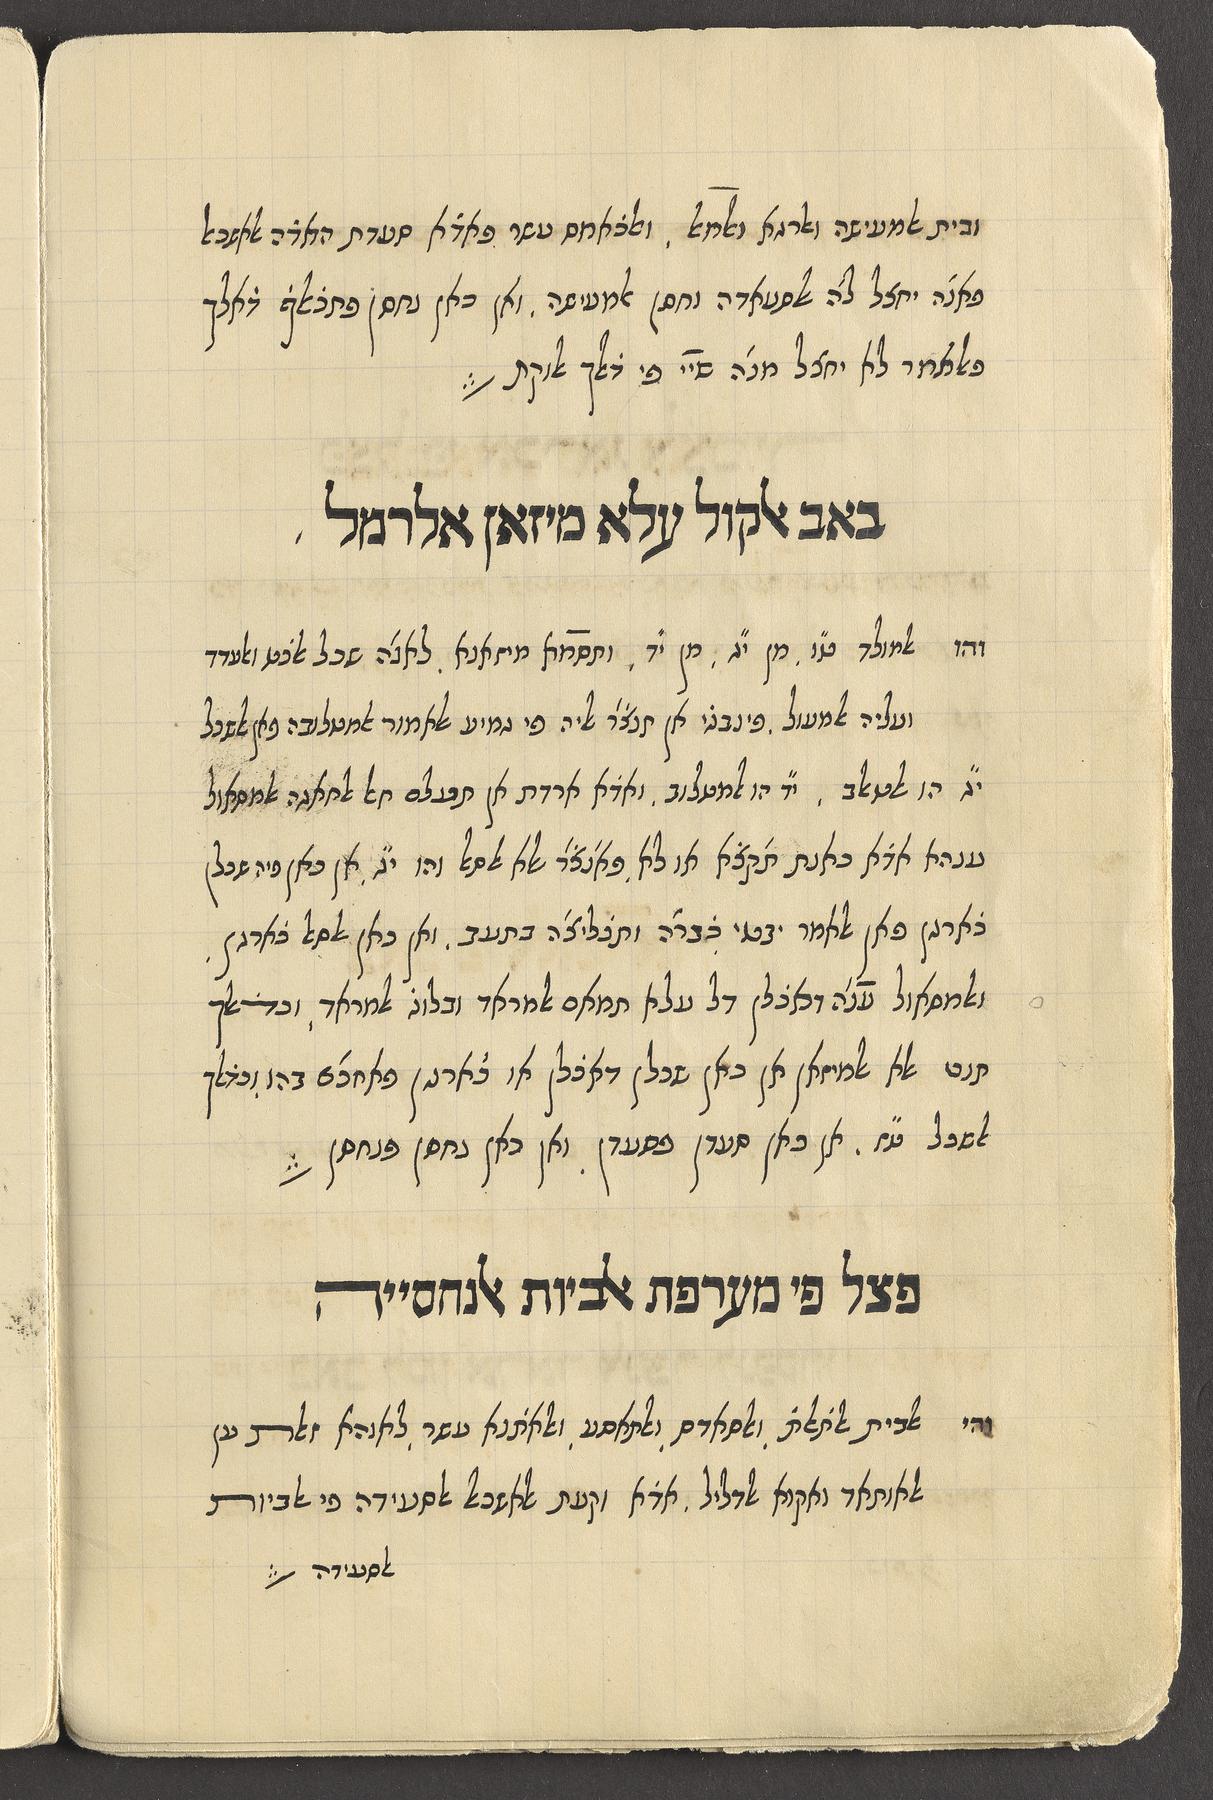 ובית אלמעישה ואלרגא ואלמא , ואלכ֗אמס עשר פאד֗א סעדת האד֗ה אלאשכאל
פאנ֗ה יחצ֗ל לה אלסעאדה וחסן אלמעישה , ואן כאן נחסן פתכ֗אלף ד֗אלך
פאלאמר לא יחצ֗ל מנ֗ה שיי פי ד֗אלך אלוקת
באב אלקול עלא מיזאן אלרמל
והו אלמולד ט״ו , מן י״ג , מן י״ד , ותסמא מיזאנא , לאנ֗ה שכל אלכ֗ט ואלעדד
ועליה אלמעול , פינבגי אן תנצ֗ר אליה פי גמיע אלאמור אלמטלובה פאן אלשכל
י״ג הו אלטאלב , י״ד הו אלמטלוב , ואד֗א ארדת אן תעלם חאל אלחאגה אלמסאול
ענהא אד֗א כאנת תקצ֗א או לא , פאנצ֗ר אלא אלסאל והו י״ג , אן כאן פיה שכלן
כ֗ארגן פאן אלאמר יצטי כ֗צרה ותכ֗ליצ֗ה בתעב , ואן כאן אלסאל כ֗ארגן ,
ואלמסאול ענ֗ה דאכ֗לן דל עלא תמאם אלמראד ובלוג אלמראד , וכד֗אלך
תנט אלא אלמיזאן אן כאן שכלן דאכ֗לן או כ֗ארגן פאחכ֗ם בהו , וכד֗אלך
אלשכל ט״ז , אן כאן סעדן פסעדן , ואן כאן נחסן פנחסן
פצל פי מערפת אלביות אלנחסייה
והי אלבית אלת֗אלת֗ , ואלסאדס , ואלתאסע , ואלאת֗נא עשר , לאנהא זאלת ען
אלאותאד ואקוא אלדליל , אד֗א וקעת אלאשכאל אלסעידה פי אלביות
אלסעידה